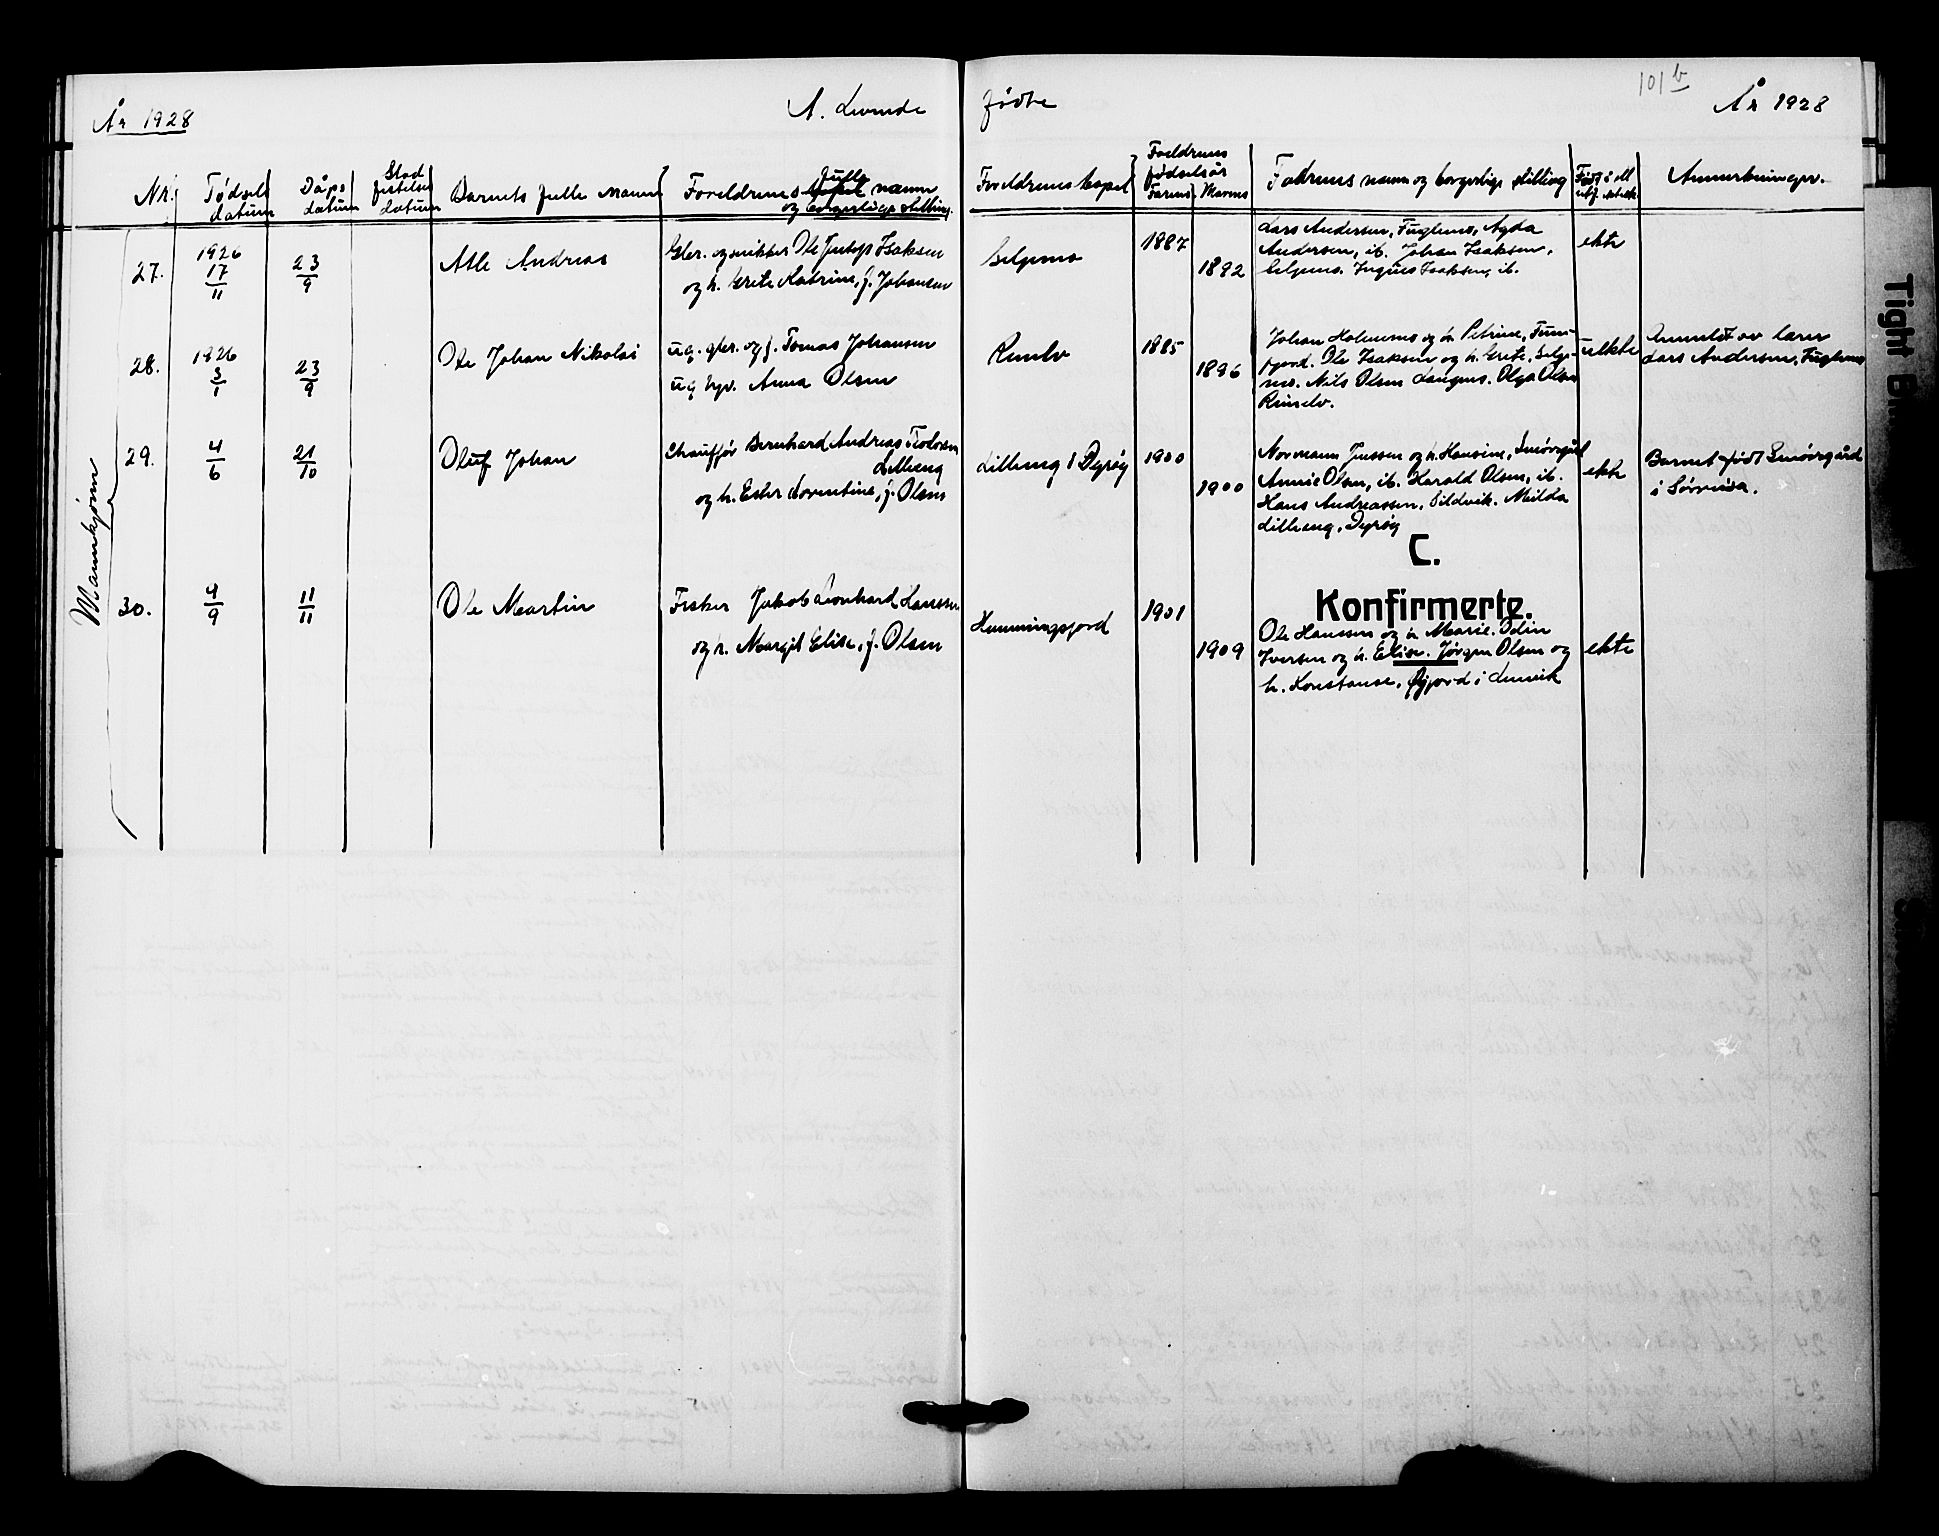 101 b
År 1928
A. Levende
fødte
År 1928
Nr.
Fødsels
datum
Dåps
datum
Stad
festelses
datum
Barnets fulle navn
Foreldrenes fulle navn
og borgerlige stilling.
Foreldrenes bopel
Foreldrenes
fødselsår
Farens
Morens
Fadrenes navn og borgerlige stilling
Født i ell.
utf. ektesk.
Anmerkninger.
Mannkjønn
27.
1926
17
11
23
9
Atle Andreas
Gbr. og snikker Ole Justop Isaksen
og h. Grete Katrine, f. Johansen
Selgenes
1887
1892
Lars Andersen, Fuglenes, Agda
Andersen, ib. Johan Isaksen,
Selgenes. Ingnes Isaksen, ib.
ekte
28.
1926
3
1
23
9
Ole Johan Nikolai
ug. gbr. og f. Tomas Johansen
ug hgv. Anna Olsen
Rimelv
1885
1896
Johan Holmenes og h. Petrine, Finn-
fjord. Ole Isaksen og h. Grete, Selge-
nes. Nils Olsen Langnes. Olga Olsen
Rimelv.
uekte
Anmeldt av lærer
Lars Andersen, Fuglenes
29.
4
6
21
10
Oluf Johan
Chauffør Bernhard Andreas Teodorsen
Lilleng
og h. Ester Lorentine, f. Olsen
Lilleng i Dyrøy
1900
1900
Normann Jenssen og h. Hansine, Smørsgård
Annie Olsen, ib. Harald Olsen, ib.
Hans Andreassen, Sildvik. Milda
Lilleng, Dyrøy
ekte
Barnet født Smørsgård
i Sørreisa.
C.
Konfirmerte.
30.
4
9
11
11
Ole Martin
Fisker Jakob Leonhard Hanssen
og h. Margit Elise, f. Olsen
Hemmingsfjord
1901
1909
Ole Hanssen og h. Marie. Odin
Iversen og h. Elise. Jørgen Olsen og
h. Konstanse, Øyjord i Lenvik
ekte
Tight B